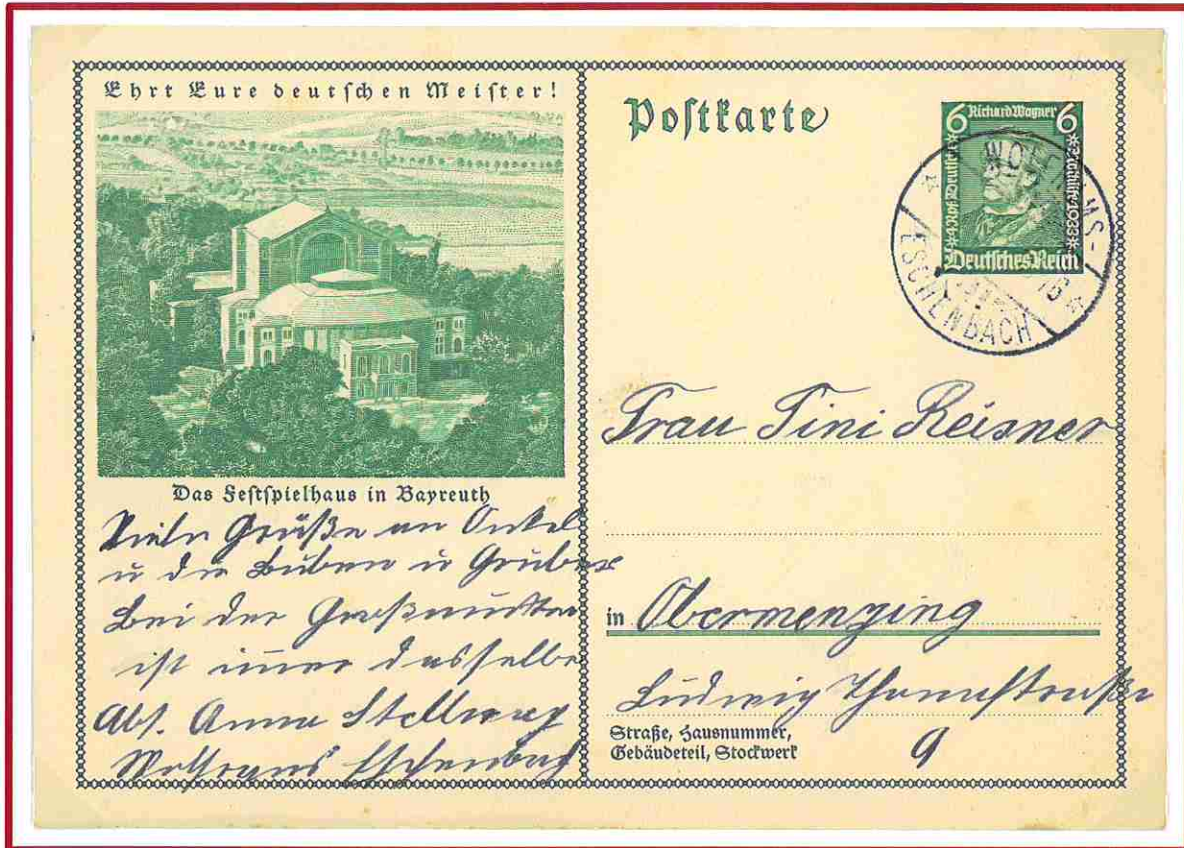 Ehrt Eure deutschen Meister!
Das Festspielhaus in Bayreuth
Viele Grüße an Onkel
u die Buben u Gruber
Bei der Großmutter
ist immer dasselbe
Abs. Anna Stellwag
Wolframs Eschenbach
Postkarte
6 Richard Wagner 6
1933
Deutsches Reich
WOLFRAMS-
ESCHENBACH
Frau Tini Reisner
in Obermenzing
Ludwig Thomastraße
9
Straße, Hausnummer,
Gebäudeteil, Stockwerk